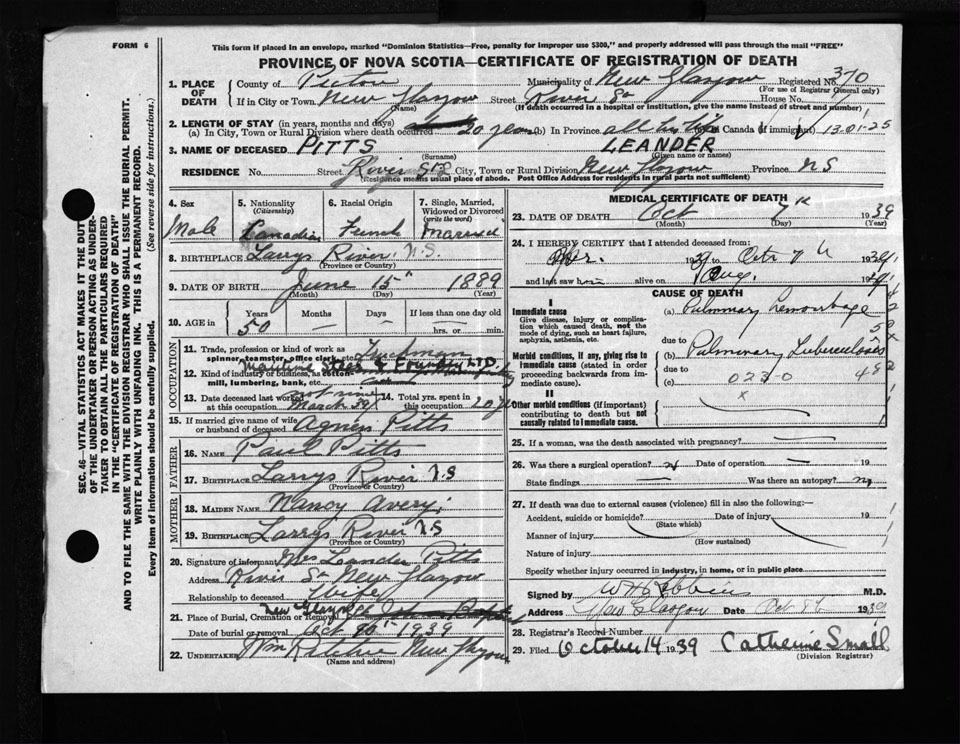 FORM 6
This form if placed in an envelope, marked "Dominion Statistics—Free, penalty for improper use $300," and properly addressed will pass through the mail "FREE"
PROVINCE OF NOVA SCOTIA—CERTIFICATE OF REGISTRATION OF DEATH
SEC. 46—VITAL STATISTICS ACT MAKES IT THE DUTY
OF THE UNDERTAKER OR PERSON ACTING AS UNDER-
TAKER TO OBTAIN ALL THE PARTICULARS REQUIRED
IN THE "CERTIFICATE OF REGISTRATION OF DEATH"
AND TO FILE THE SAME WITH THE DIVISION REGISTRAR WHO SHALL ISSUE THE BURIAL PERMIT.
WRITE PLAINLY WITH UNFADING INK. THIS IS A PERMANENT RECORD.
Every item of information should be carefully supplied. (See reverse side for instructions.)
1. PLACE OF DEATH County of Pictou Municipality of New Glasgow Registered No. 370
(For use of Registrar General only)
If in City or Town New Glasgow Street River St House No.
(If death occurred in a hospital or institution, give the name instead of street and number)
2. LENGTH OF STAY (in years, months and days)
(a) In City, Town or Rural Division where death occurred 20 years (b) In Province all his life (c) at Canada (if immigrant) 13-01-25
3. NAME OF DECEASED PITTS LEANDER
(Surname) (Given name or names)
RESIDENCE No. Street River St City, Town or Rural Division New Glasgow Province NS
(Residence means usual place of abode. Post Office Address for residents in rural parts not sufficient)
4. Sex 5. Nationality (Citizenship) 6. Racial Origin 7. Single, Married, Widowed or Divorced (write the word)
Male Canadian French Married
8. BIRTHPLACE Larrys River N.S.
(Province or Country)
9. DATE OF BIRTH June 15th 1889
(Month) (Day) (Year)
10. AGE in Years Months Days If less than one day old
50 — — hrs. or min.
OCCUPATION
11. Trade, profession or kind of work as
spinner, teamster, office clerk, etc.
12. Kind of industry or business, as cotton
mill, lumbering, bank, etc. Maritime Steel & Foundry LTD.
13. Date deceased last worked at this occupation March 39 14. Total yrs. spent in this occupation 20
15. If married give name of wife
or husband of deceased Agnes Pitts
FATHER
16. NAME Paul Pitts
17. BIRTHPLACE Larrys River N.S
(Province or Country)
MOTHER
18. MAIDEN NAME Nancy Avery
19. BIRTHPLACE Larrys River N.S
(Province or Country)
20. Signature of informant Mrs Leander Pitts
Address River St New Glasgow
Relationship to deceased Wife
21. Place of Burial, Cremation or Removal New Glasgow
Date of burial or removal Oct 1939
22. UNDERTAKER Wm New Glasgow
(Name and address)
MEDICAL CERTIFICATE OF DEATH
23. DATE OF DEATH Oct 7th 1939
(Month) (Day) (Year)
24. I HEREBY CERTIFY that I attended deceased from:
Apr. 1939 to Oct 7th 1939
and last saw him alive on Aug. 1939
CAUSE OF DEATH
I
Immediate cause
Give disease, injury or complication which caused death, not the mode of dying, such as heart failure, asphyxia, asthenia, etc.
(a) Pulmonary hemorrhage
due to
Morbid conditions, if any, giving rise to immediate cause (stated in order proceeding backwards from immediate cause).
(b) Pulmonary Tuberculosis
due to
(c) 023-0
II
Other morbid conditions (if important) contributing to death but not causally related to immediate cause.
25. If a woman, was the death associated with pregnancy? —
26. Was there a surgical operation? no Date of operation — 19
State findings — Was there an autopsy? no
27. If death was due to external causes (violence) fill in also the following:—
Accident, suicide or homicide? Date of injury 19
(State which)
Manner of injury
(How sustained)
Nature of injury
Specify whether injury occurred in industry, in home, or in public place
Signed by M.D.
Address New Glasgow Date Oct 8th 1939
28. Registrar's Record Number
29. Filed October 14 1939 Catherine Small
(Division Registrar)